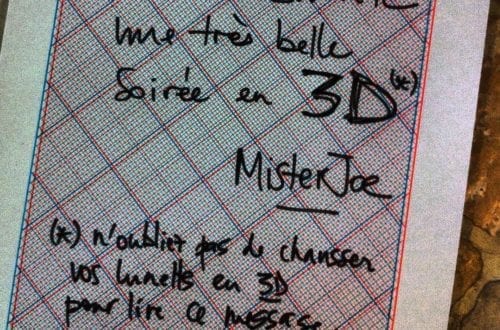 une très belle
Soirée en 3D(*)
MisterJoe
(*) n'oubliez pas de chausser
vos lunettes en 3D
pour lire ce message